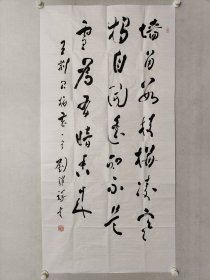 墙角数枝梅凌寒
独自开遥知不是
雪为有暗香来
王荆公梅花一首 刘